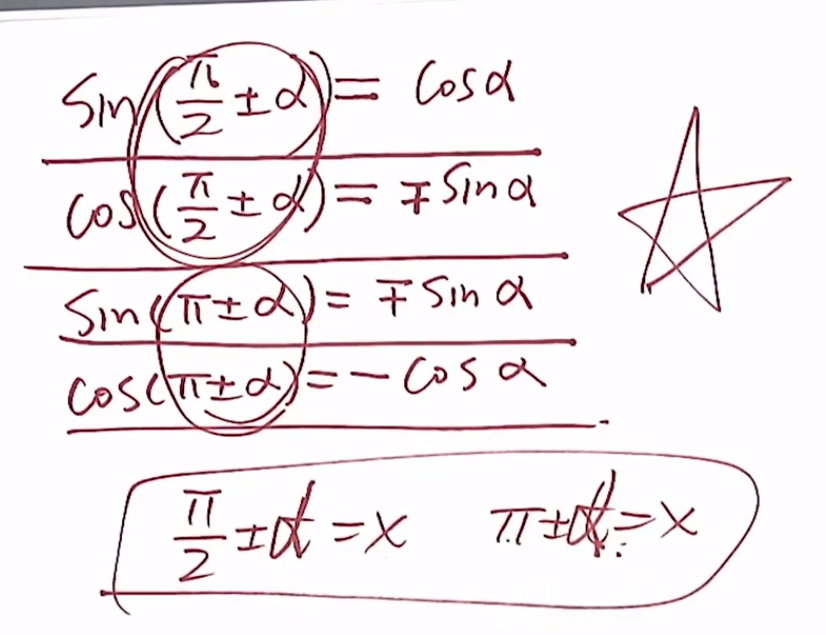 sin(π/2 ± α) = cosα
cos(π/2 ± α) = ∓ sinα
sin(π ± α) = ∓ sin α
cos(π ± α) = - cos α
π/2 ± α = x π ± α = x